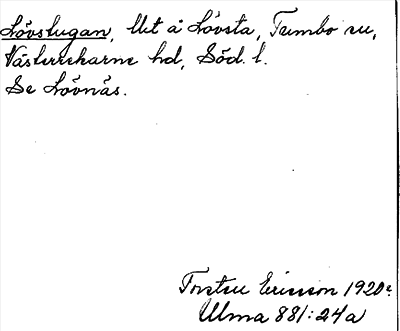 Lövstugan, Ut å Lövsta, Tumbo sn,
Västerrekarne hd, Söd. l.
Se Lövnäs.
Torsten Ericsson 1920
Ulma 881:24a